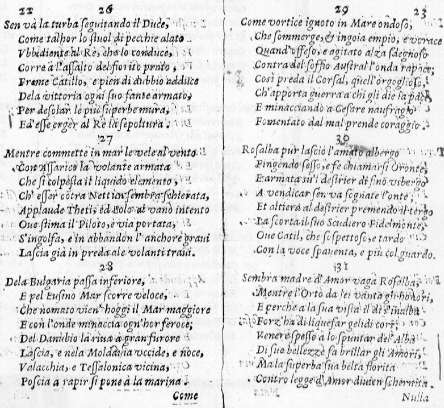 22
26
Sen và la turba seguitando il Duce,
Come talhor lo stuol di pecchie alato
Vbbidiente al Rè, che lo conduce,
Corre à l'assalto del fiorito prato,
Freme Catillo, e pien di dubbio adduce
De la vittoria ogni suo fante armato,
Per desolar le più superbe mura,
Ed esse erger al Rè la sepoltura.
27
Mentre commette in mar le vele al vento
Con Assarico la volante armata
Che si colpesta il liquido elemento,
Ch' esser contra Nettun sembra schierata,
Applaude Theti, ed Eolo al vano intento
Oue stima il Piloto, è via portata,
S'ingolfa, e in abbandon l' anchore graui
Lascia già in preda a le volanti traui.
28
De la Bulgaria passa inferiore,
E pel Eusino Mar scorre veloce,
Che nomato vien' hoggi il Mar maggiore
E con l'onde minaccia ogn'hor feroce;
Del Danubio la riua à gran furore
Lascia, e ne la Moldauia vccide, e noce,
Valacchia, e Tessalonica vicina,
Poscia a rapir si pone à la marina.
Come
29
23
Come vortice ignoto in Mare ondoso,
Che sommerge, & ingoia empio, e vorace
Quand' offeso, e agitato alza sdegnoso
Contra del soffio Austral l'onda rapace,
Così preda il Corsal, quell'orgoglioso
Ch' apporta guerra a chi gli die la pace,
E minacciando a Cesare naufragio
Fomentato dal mal prende coraggio.
30
Rosalba pur lasciò l'amato albergo
Fingendo sesso, e fè chiamarsi Oronte,
E armata su'l destrier di fino vsbergo
A vendicar sen va
Et altiera al destrier premendo il tergo
La scorta il suo Scudiero Fidelmonte,
Oue Catil, che sospettoso, e tardo
Con la voce spauenta, e più col guardo.
31
Sembra madre d'Amor vaga Rosalba,
Mentre l'Orto da lei vanta gli honori,
E perche a la sua vista
Forz' hà di liquefar gelidi cori,
Venere spesso a lo spuntar del Alba
Di sue bellezze fà brillar gli Amori,
Ma la superba sua beltà fiorita
Contro legge d'Amor diuien schernita.
Nulla